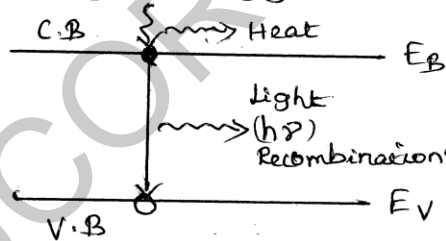 C.B
Heat
E_B
Light
(hγ)
Recombination
V.B
E_V